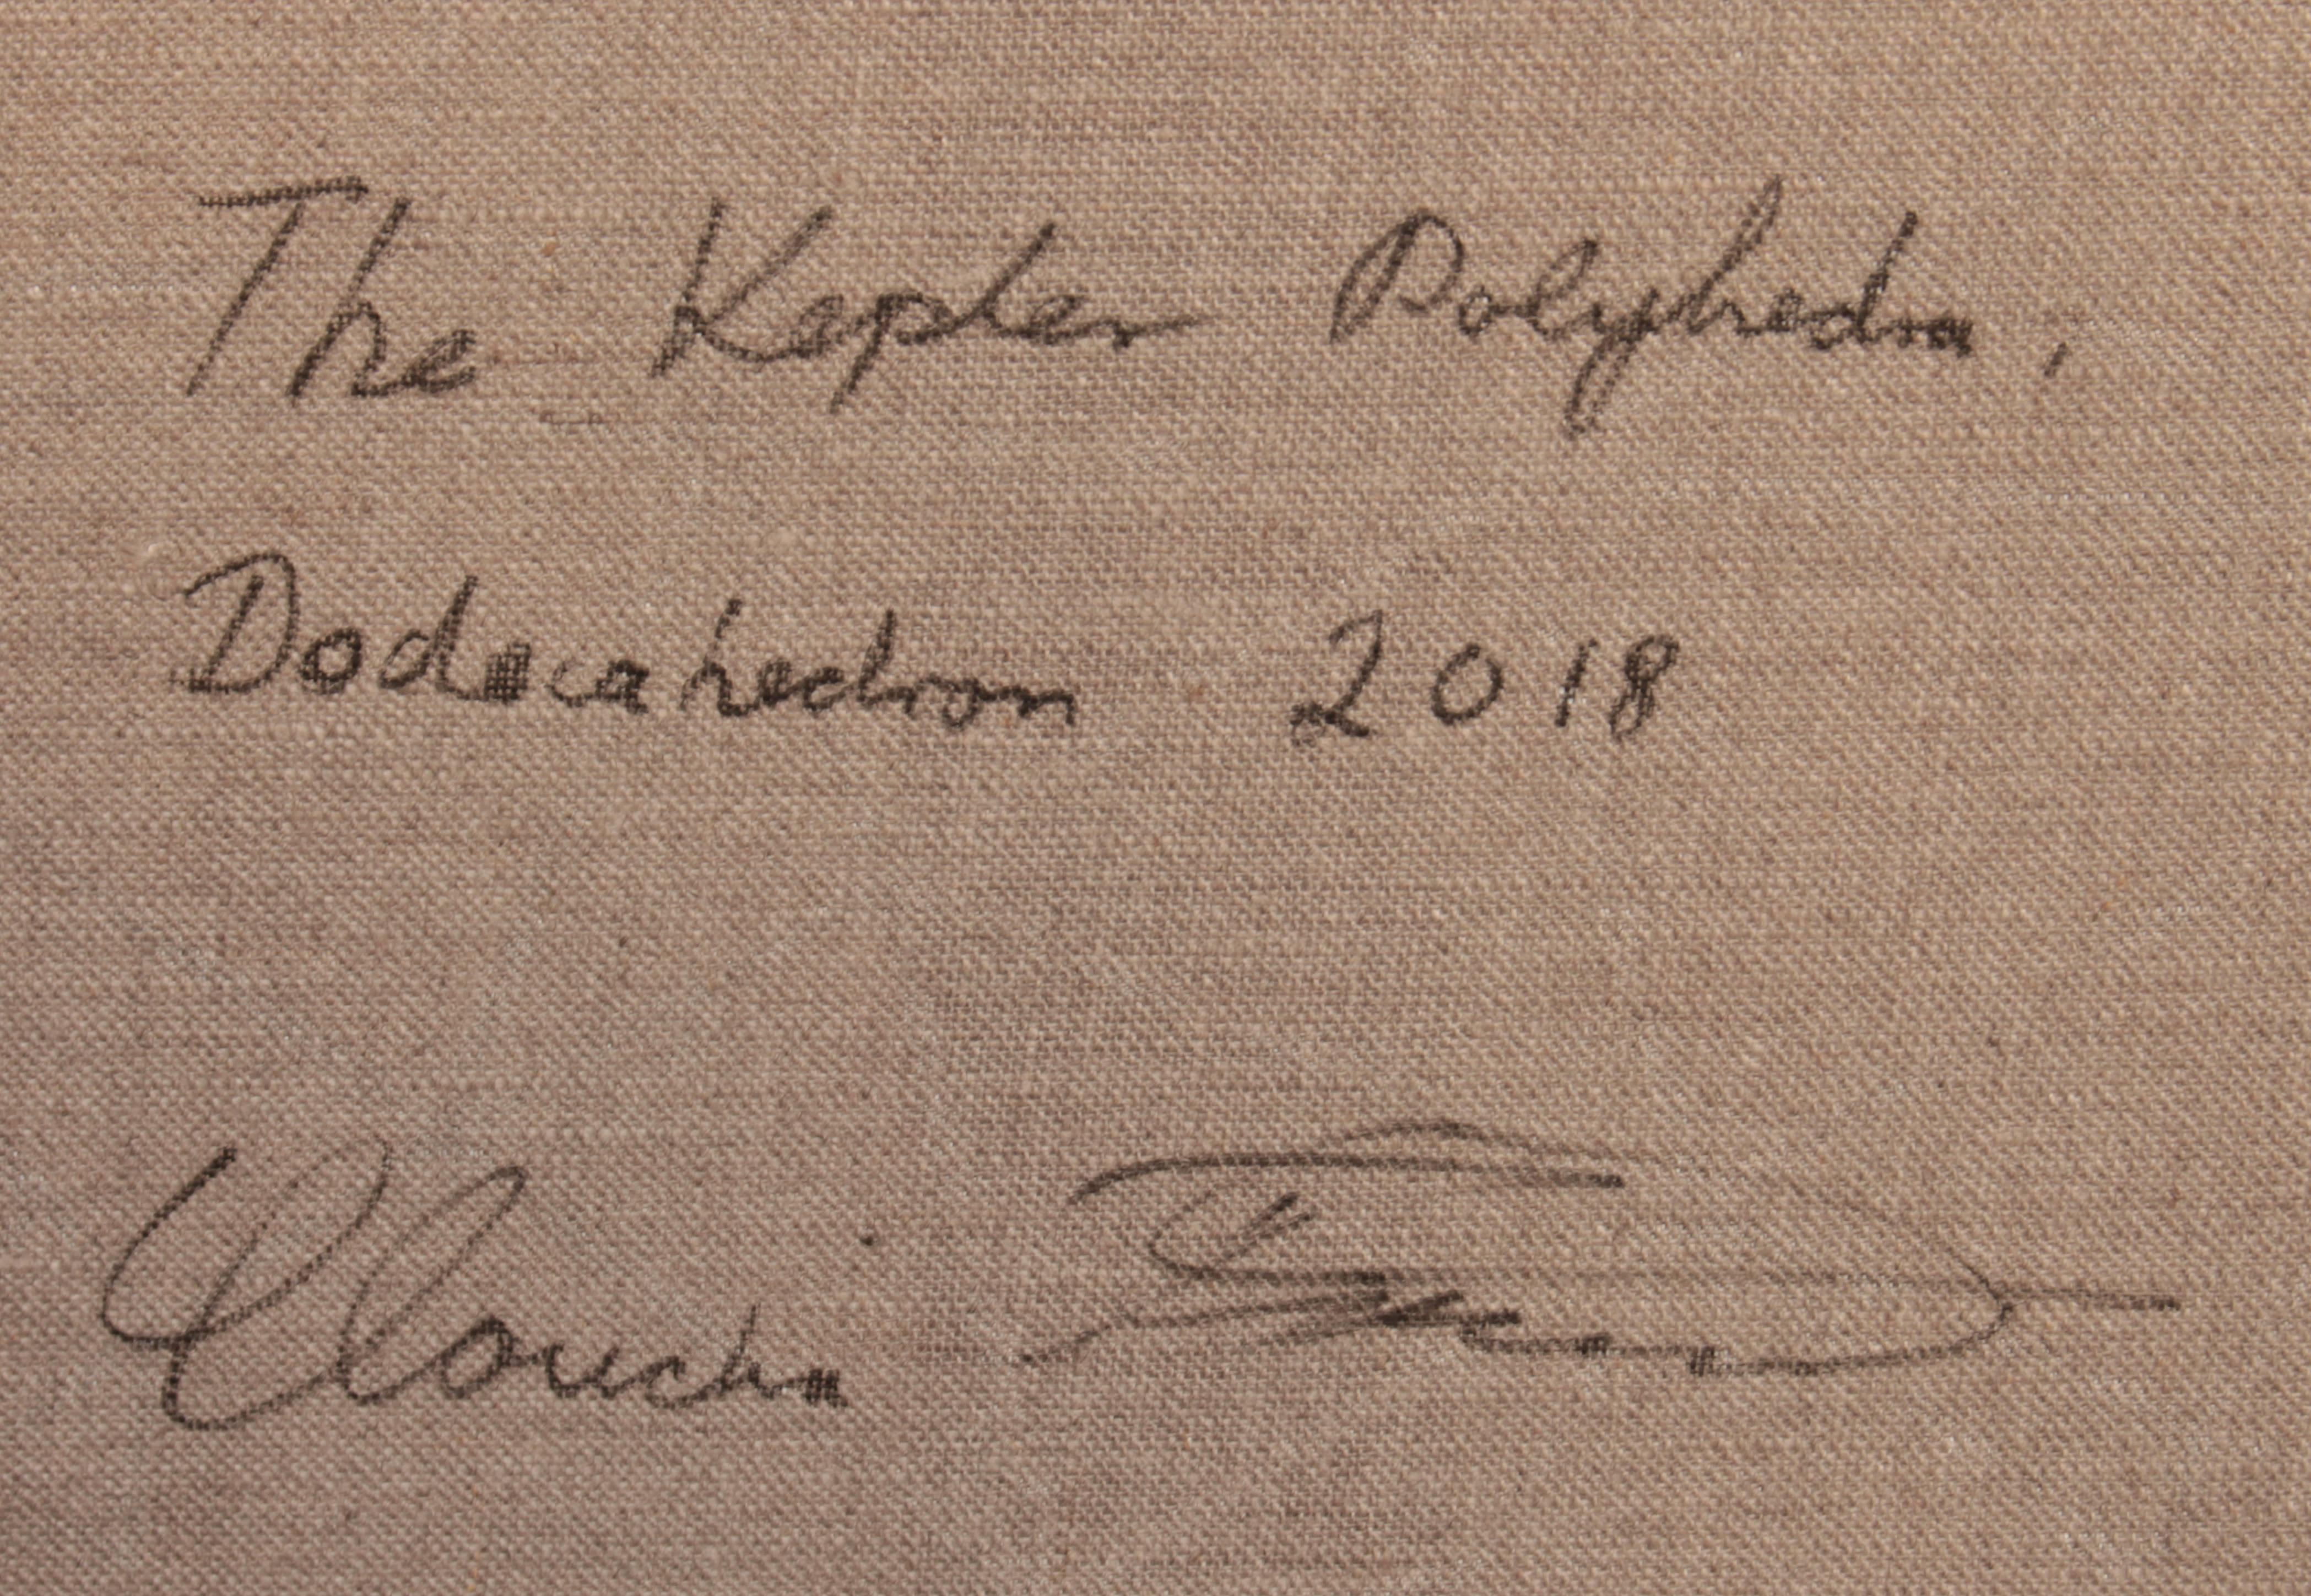 The Kepler Polyhedra,
Dodecahedron 2018